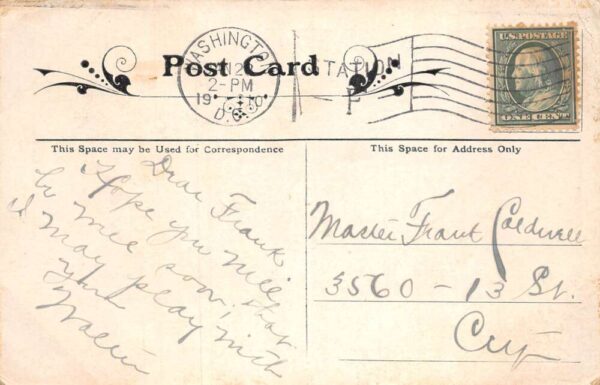 Post Card
WASHINGTON
2-PM
19 10
D.C.
STATION
P
U.S. POSTAGE
ONE CENT
This Space may be Used for Correspondence
This Space for Address Only
Dear Frank
Hope you will
be well soon, that
I may play with
you
Master Frank Caldwell
3560 - 13 St.
City